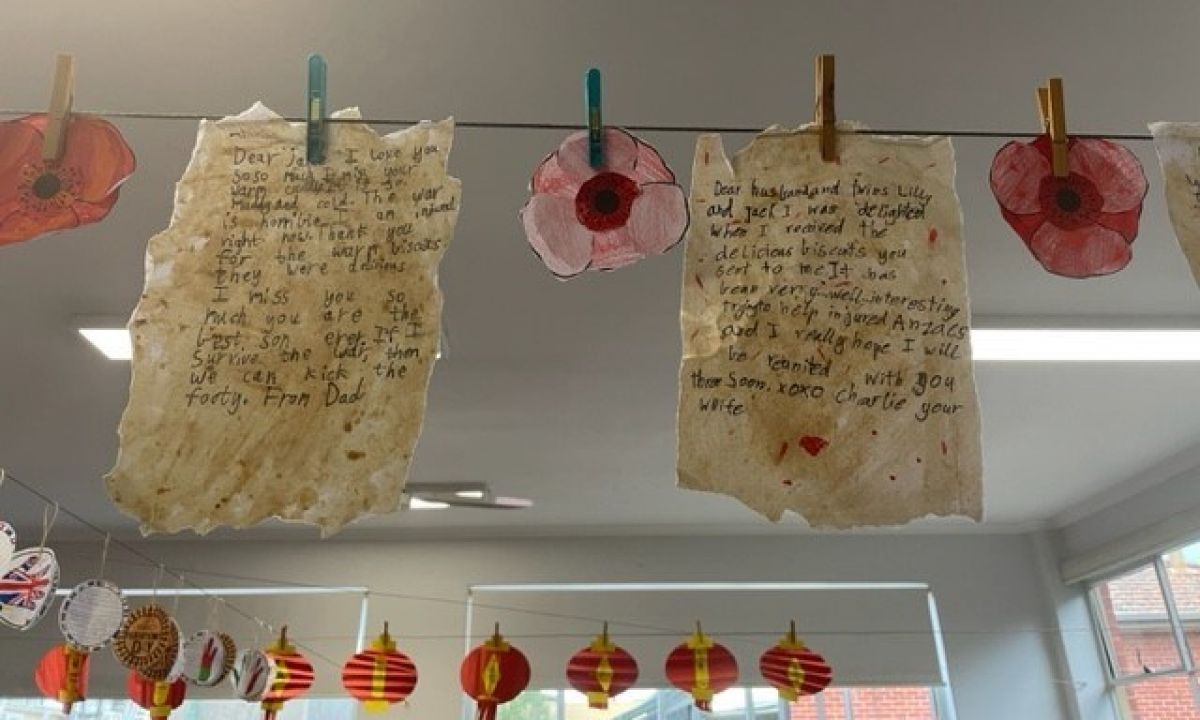 Dear I love you
soso much I miss your
warm
and cold. The war
is horrible I an injured
right now. Thank you
for the warm biscuits
they were delicious
I miss you so
much you are the
best son ever. If I
Survive the war, then
we can kick the
footy. From Dad
Dear husband and twins Lilly
and Jack I was delighted
when I received the
delicious biscuits you
sent to me It has
been very well interesting
trying to help injured Anzacs
and I really hope I will
be reunited with you
three Soon. xoxo charlie your
wife